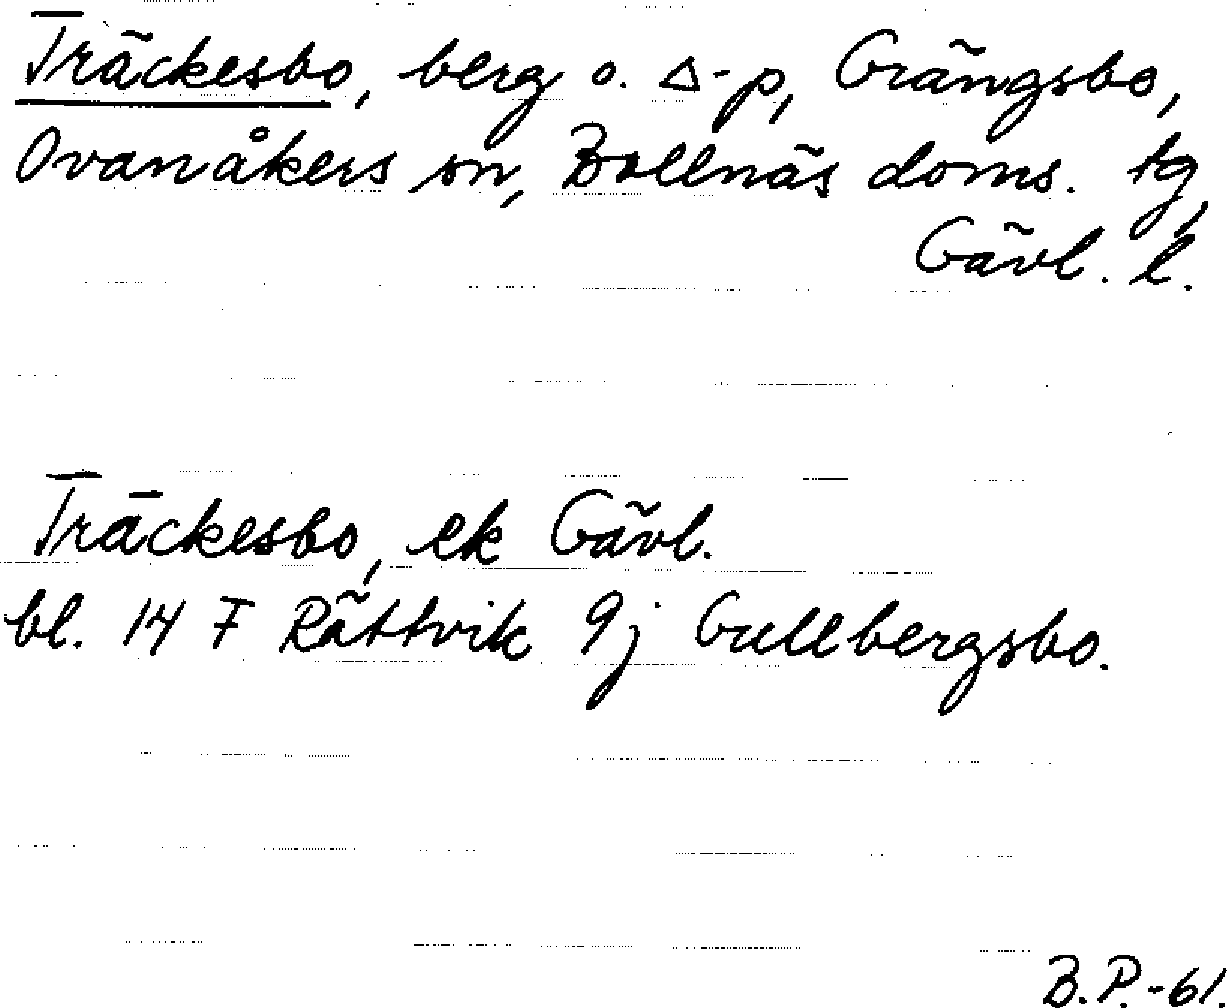 Träckesbo, berg o. Δ-p, Grängsbo,
Ovanåkers sn, Bollnäs doms. tg,
Gävl. l.
Träckesbo, ek Gävl.
bl. 14 F Rättvik 9j Gullbergsbo.
B.P.-61.